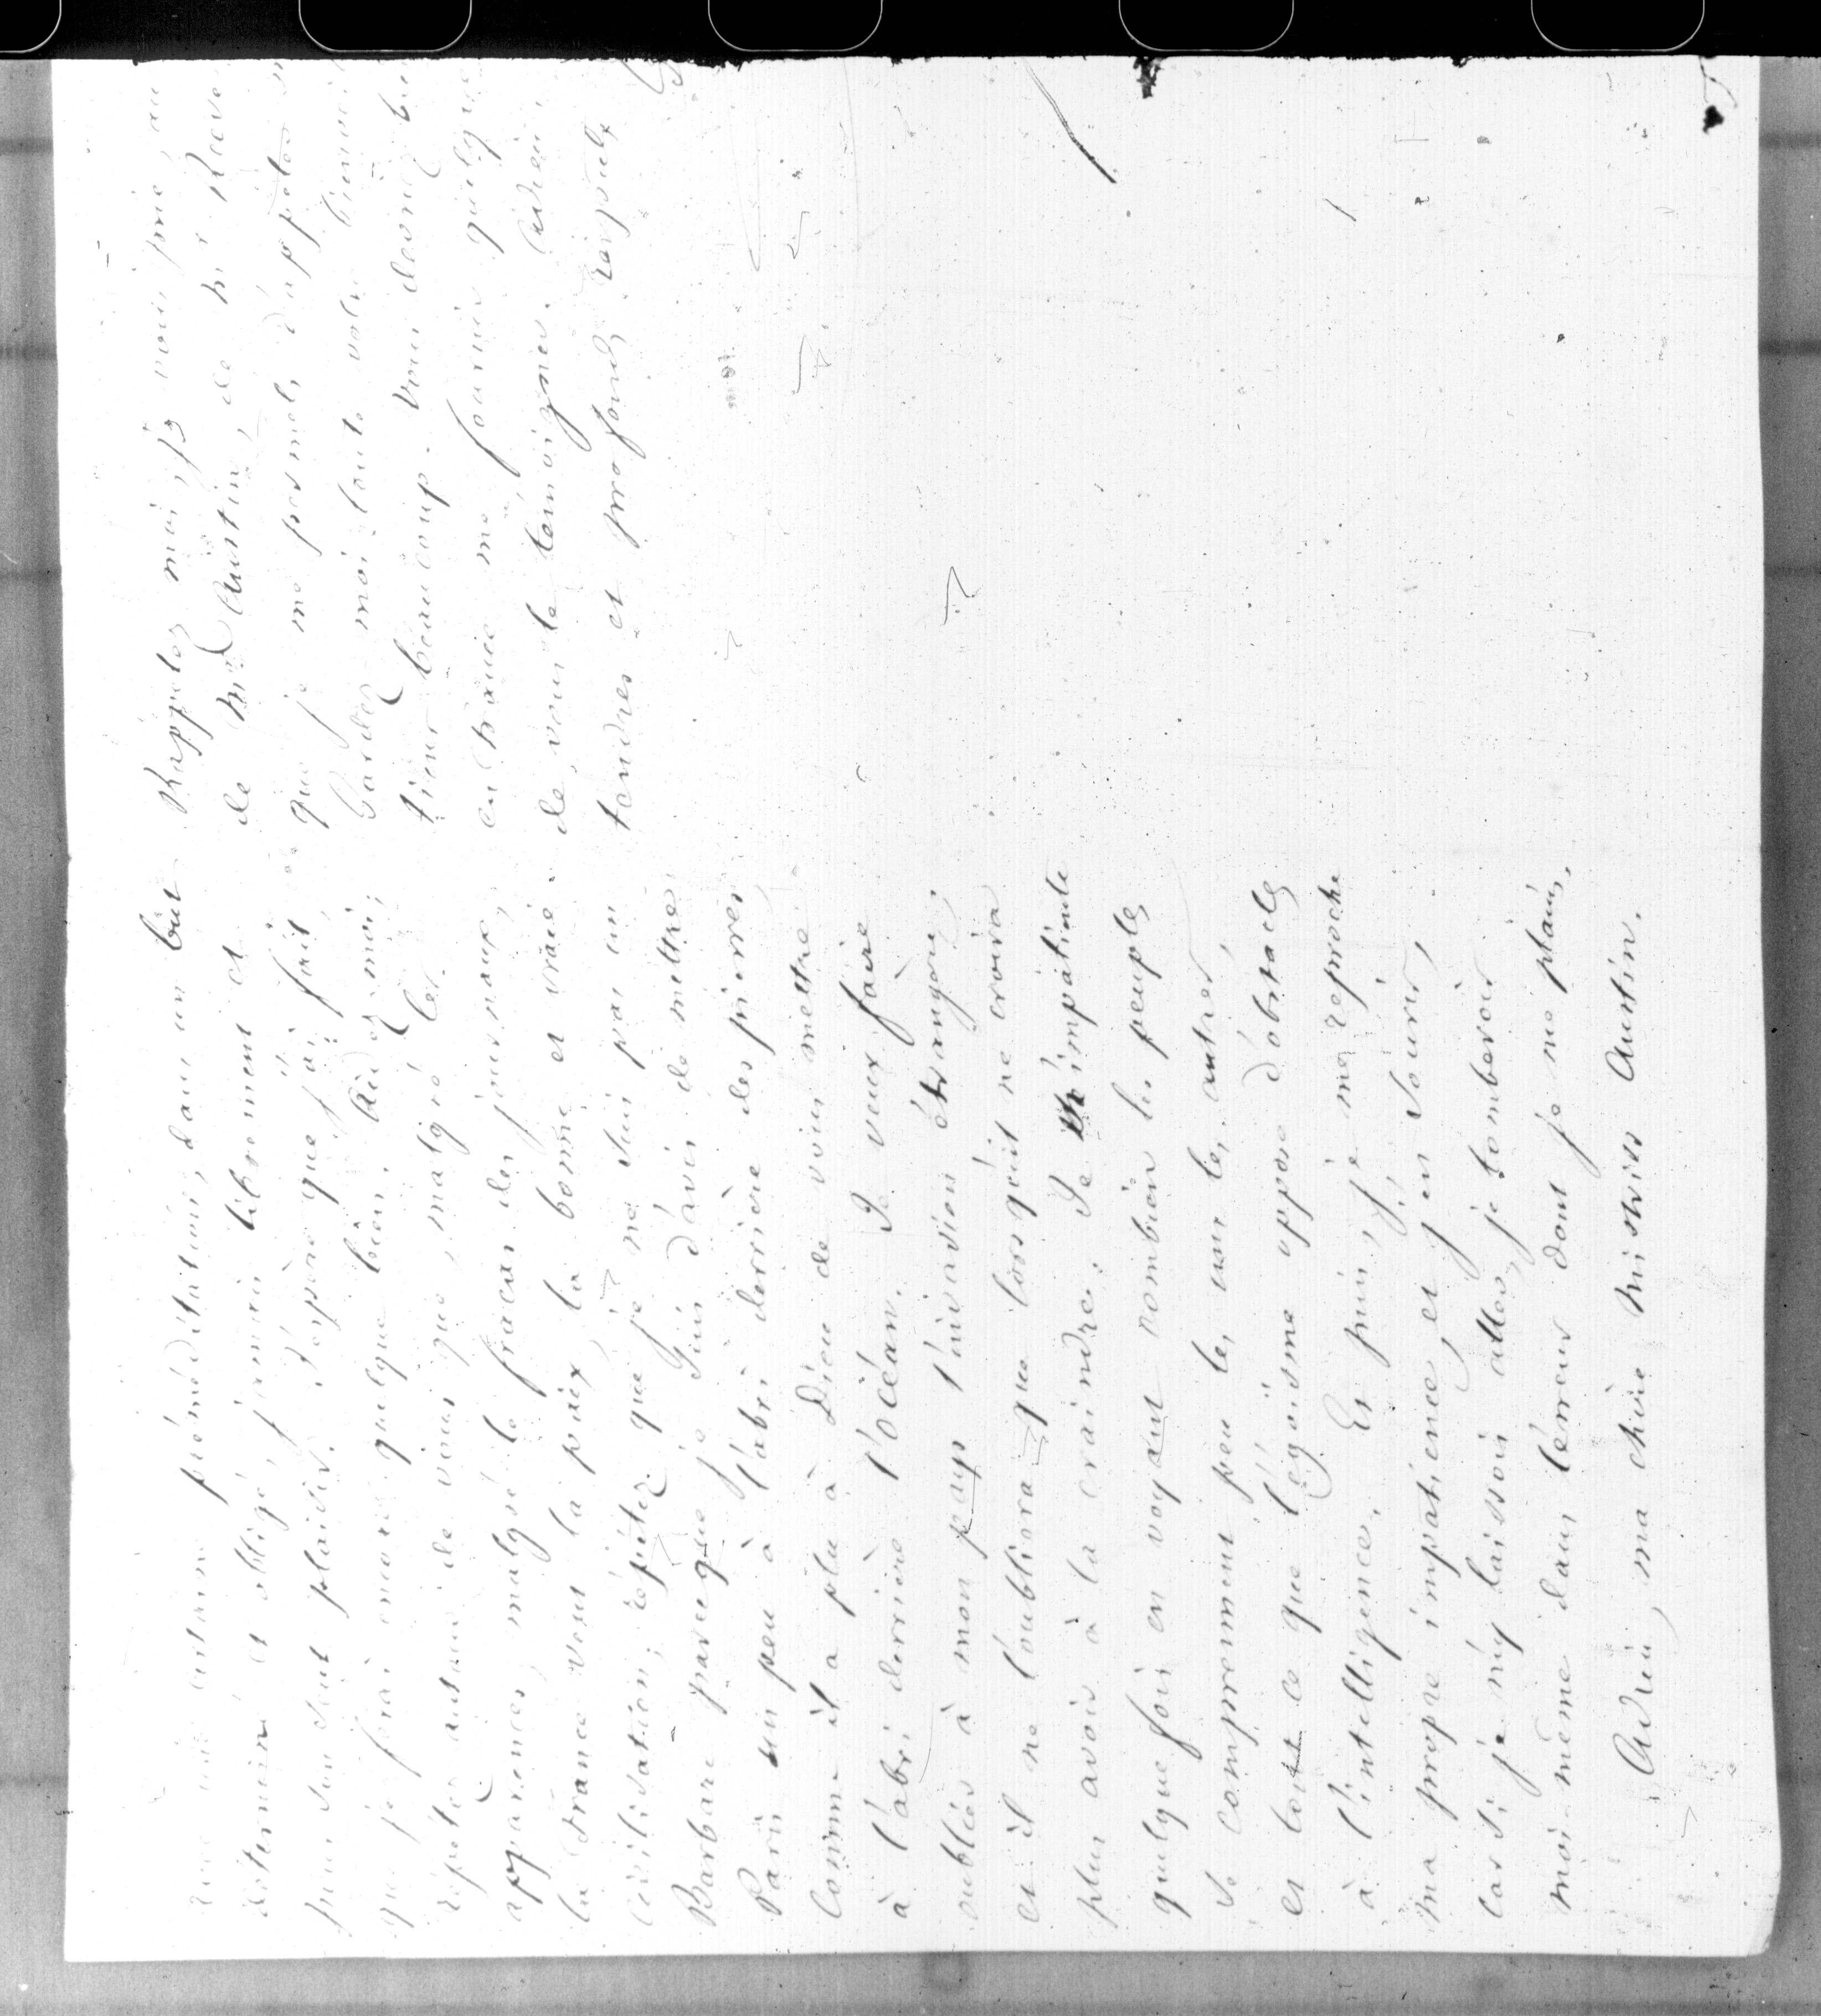 avec une certaine préméditation, dans un but
déterminé et obligé, jamais librement et
pour son seul plaisir. J'espère que j'ai fait,
que je ferai encore quelque bien. Aidez moi;
répétez autour de vous que, malgré les
apparences, malgré le fracas des journaux,
la France veut la paix, la bonne et vraie
civilisation; répétez que je ne suis pas un
Barbare parceque je suis d'avis de mettre
Paris un peu à l'abri derrière des pierres,
comme il a plu à Dieu de vous mettre
à l'abri derrière l'océan. Je veux faire
oublier à mon pays l'invasion étrangère;
et il ne l'oubliera que lorsqu'il ne croira
plus avoir à la craindre. Je m'impatiente
quelque fois en voyant combien les peuples
se comprennent peu les uns les autres,
et tout ce que l'égoïsme oppose d'obstacles
à l'intelligence. Et puis, je me reproche
ma propre impatience, et j'en souris,
car si je m'y laissois aller, je tomberois
moi-même dans l'erreur dont je me plains.
Adieu, ma chère Mistriss Austin.
Rappelez moi, je vous prie, au
de Mr Austin, de Mr Reeve
que je me permets d'appeler
Gardez moi toute votre
tiens beaucoup. Vous devriez
en France me fournir quelque
de vous le témoigner. Adieu.
tendres et profonds respects